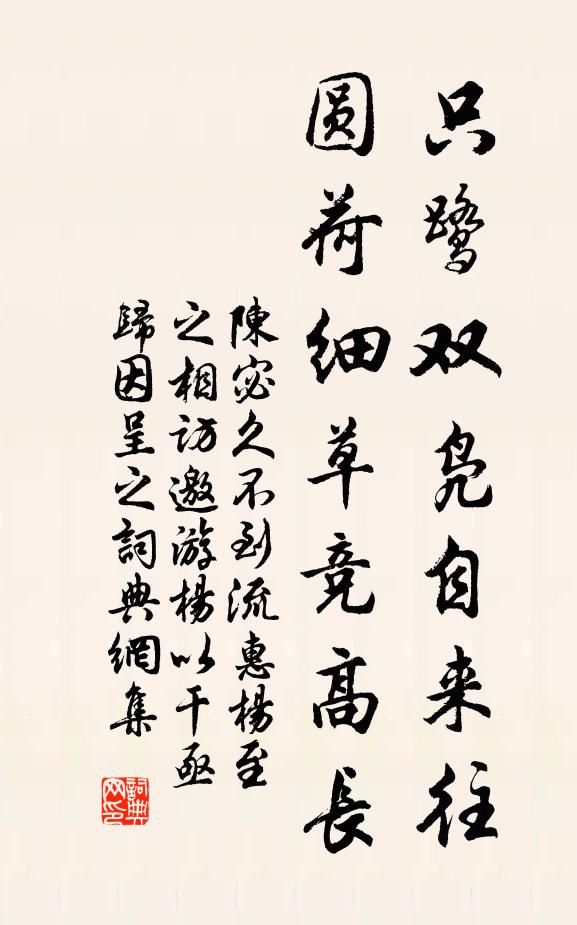 只鹭双凫自来往
圆荷细草竞高長
陳宓久不到流惠楊至
之相訪邀游楊以干亟
歸因呈之詞典網集
詞典网印